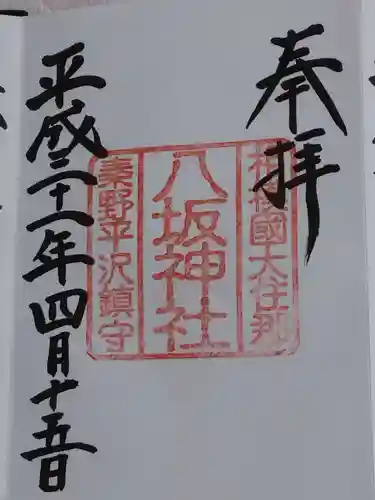 奉拝
相模國大住郡
八坂神社
秦野平沢鎮守
平成二十一年四月十五日